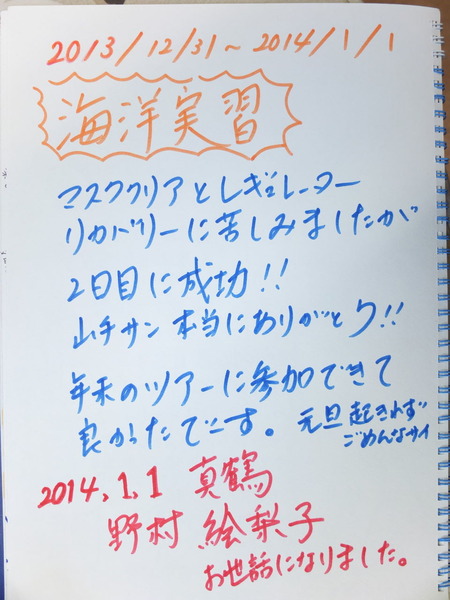 2013/12/31~2014/1/1
海洋実習
マスククリアとレギュレーター
リカバリーに苦しみましたが
2日目に成功!!
山手サン本当にありがとウ!!
年末のツアーに参加できて
良かったでーす。元旦起きれず
ごめんなサイ
2014.1.1 真鶴
野村 絵梨子
お世話になりました。